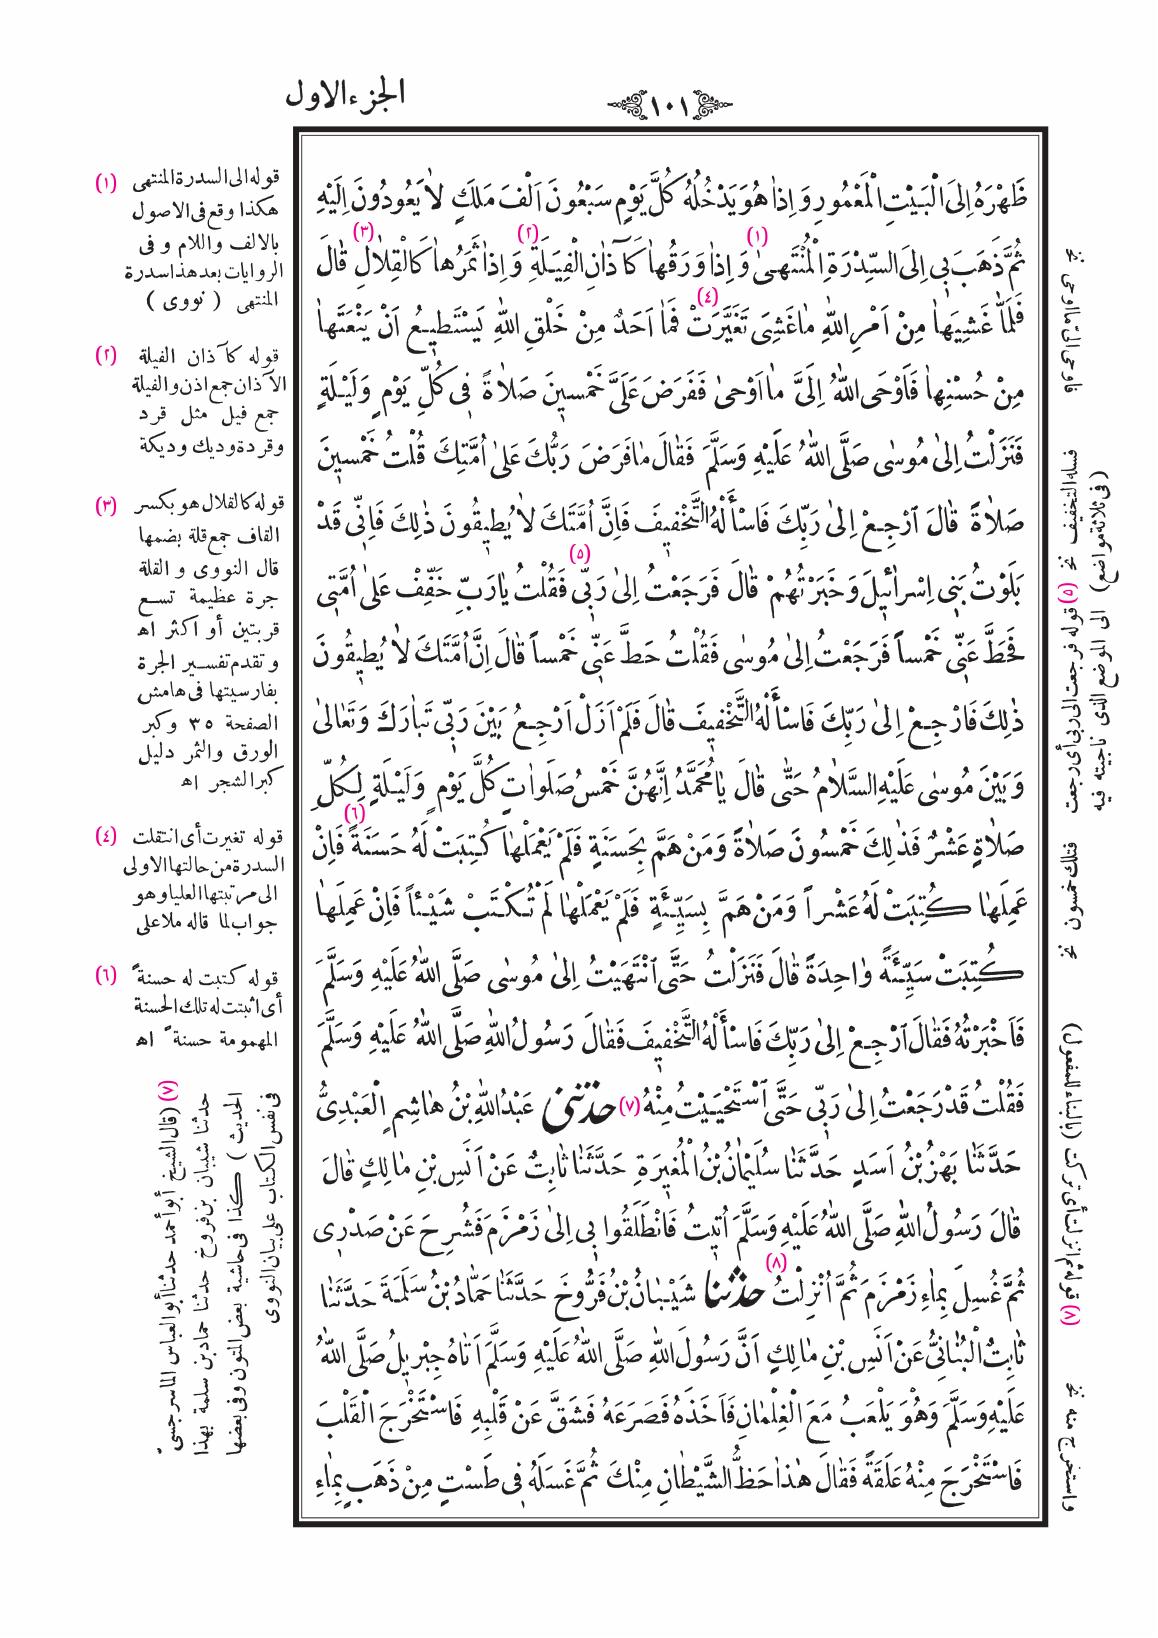 الجزء الاول
١٠١
ظَهْرَهُ إِلَى الْبَيْتِ الْمَعْمُورِ وَإِذَا هُوَ يَدْخُلُهُ كُلَّ يَوْمٍ سَبْعُونَ أَلْفَ مَلَكٍ لَا يَعُودُونَ إِلَيْهِ
ثُمَّ ذَهَبَ بِي إِلَى السِّدْرَةِ الْمُنْتَهَىٰ (١) وَإِذَا وَرَقُهَا كَآذَانِ الْفِيَلَةِ (٢) وَإِذَا ثَمَرُهَا كَالْقِلَالِ (٣) قَالَ
فَلَمَّا غَشِيَهَا مِنْ أَمْرِ اللهِ مَا غَشِيَ تَغَيَّرَتْ (٤) فَمَا أَحَدٌ مِنْ خَلْقِ اللهِ يَسْتَطِيعُ أَنْ يَنْعَتَهَا
مِنْ حُسْنِهَا فَأَوْحَى اللهُ إِلَيَّ مَا أَوْحَىٰ فَفَرَضَ عَلَيَّ خَمْسِينَ صَلَاةً فِي كُلِّ يَوْمٍ وَلَيْلَةٍ
فَنَزَلْتُ إِلَىٰ مُوسَى صَلَّى اللهُ عَلَيْهِ وَسَلَّمَ فَقَالَ مَا فَرَضَ رَبُّكَ عَلَىٰ أُمَّتِكَ قُلْتُ خَمْسِينَ
صَلَاةً قَالَ ارْجِعْ إِلَىٰ رَبِّكَ فَاسْأَلْهُ التَّخْفِيفَ فَإِنَّ أُمَّتَكَ لَا يُطِيقُونَ ذٰلِكَ فَإِنِّي قَدْ
بَلَوْتُ بَنِي إِسْرَائِيلَ وَخَبَرْتُهُمْ قَالَ فَرَجَعْتُ إِلَىٰ رَبِّي (٥) فَقُلْتُ يَا رَبِّ خَفِّفْ عَلَىٰ أُمَّتِي
فَحَطَّ عَنِّي خَمْسًا فَرَجَعْتُ إِلَىٰ مُوسَى فَقُلْتُ حَطَّ عَنِّي خَمْسًا قَالَ إِنَّ أُمَّتَكَ لَا يُطِيقُونَ
ذٰلِكَ فَارْجِعْ إِلَىٰ رَبِّكَ فَاسْأَلْهُ التَّخْفِيفَ قَالَ فَلَمْ أَزَلْ أَرْجِعُ بَيْنَ رَبِّي تَبَارَكَ وَتَعَالَىٰ
وَبَيْنَ مُوسَى عَلَيْهِ السَّلَامُ حَتَّى قَالَ يَا مُحَمَّدُ إِنَّهُنَّ خَمْسُ صَلَوَاتٍ كُلَّ يَوْمٍ وَلَيْلَةٍ لِكُلِّ
صَلَاةٍ عَشْرٌ فَذٰلِكَ خَمْسُونَ صَلَاةً وَمَنْ هَمَّ بِحَسَنَةٍ فَلَمْ يَعْمَلْهَا كُتِبَتْ لَهُ حَسَنَةً (٦) فَإِنْ
عَمِلَهَا كُتِبَتْ لَهُ عَشْرًا وَمَنْ هَمَّ بِسَيِّئَةٍ فَلَمْ يَعْمَلْهَا لَمْ تُكْتَبْ شَيْئًا فَإِنْ عَمِلَهَا
كُتِبَتْ سَيِّئَةً وَاحِدَةً قَالَ فَنَزَلْتُ حَتَّى انْتَهَيْتُ إِلَىٰ مُوسَى صَلَّى اللهُ عَلَيْهِ وَسَلَّمَ
فَأَخْبَرْتُهُ فَقَالَ ارْجِعْ إِلَىٰ رَبِّكَ فَاسْأَلْهُ التَّخْفِيفَ فَقَالَ رَسُولُ اللهِ صَلَّى اللهُ عَلَيْهِ وَسَلَّمَ
فَقُلْتُ قَدْ رَجَعْتُ إِلَىٰ رَبِّي حَتَّى اسْتَحْيَيْتُ مِنْهُ (٧) حدثنى عَبْدُ اللهِ بْنُ هَاشِمٍ الْعَبْدِيُّ
حَدَّثَنَا بَهْزُ بْنُ أَسَدٍ حَدَّثَنَا سُلَيْمَانُ بْنُ الْمُغِيرَةِ حَدَّثَنَا ثَابِتٌ عَنْ أَنَسِ بْنِ مَالِكٍ قَالَ
قَالَ رَسُولُ اللهِ صَلَّى اللهُ عَلَيْهِ وَسَلَّمَ أُتِيتُ فَانْطَلَقُوا بِي إِلَىٰ زَمْزَمَ فَشُرِحَ عَنْ صَدْرِي
ثُمَّ غُسِلَ بِمَاءِ زَمْزَمَ ثُمَّ أُنْزِلْتُ (٨) حدثنا شَيْبَانُ بْنُ فَرُّوخَ حَدَّثَنَا حَمَّادُ بْنُ سَلَمَةَ حَدَّثَنَا
ثَابِتٌ الْبُنَانِيُّ عَنْ أَنَسِ بْنِ مَالِكٍ أَنَّ رَسُولَ اللهِ صَلَّى اللهُ عَلَيْهِ وَسَلَّمَ أَتَاهُ جِبْرِيلُ صَلَّى اللهُ
عَلَيْهِ وَسَلَّمَ وَهُوَ يَلْعَبُ مَعَ الْغِلْمَانِ فَأَخَذَهُ فَصَرَعَهُ فَشَقَّ عَنْ قَلْبِهِ فَاسْتَخْرَجَ الْقَلْبَ
فَاسْتَخْرَجَ مِنْهُ عَلَقَةً فَقَالَ هٰذَا حَظُّ الشَّيْطَانِ مِنْكَ ثُمَّ غَسَلَهُ فِي طَسْتٍ مِنْ ذَهَبٍ بِمَاءِ
(١) قوله الى السدرة المنتهى
هكذا وقع فى الاصول
بالالف واللام و فى
الروايات بعد هذا سدرة
المنتهى ( نووى )
(٢) قوله كآذان الفيلة
الآذان جمع اذن والفيلة
جمع فيل مثل قرد
وقردة وديك وديكة
(٣) قوله كالقلال هو بكسر
القاف جمع قلة بضمها
قال النووى و القلة
جرة عظيمة تسع
قربتين أو اكثر اه
و تقدم تفسير الجرة
بفارسيتها فى هامش
الصفحة ٣٥ وكبر
الورق والثمر دليل
كبر الشجر اه
(٤) قوله تغيرت أى انتقلت
السدرة من حالتها الاولى
الى مرتبتها العليا وهو
جواب لما قاله ملا على
(٦) قوله كتبت له حسنةً
أى اثبتت له تلك الحسنة
المهمومة حسنةً اه
(٧) (قال الشيخ أبو أحمد حدثنا أبو العباس الماسرجسىّ
حدثنا شيبان بن فروخ حدثنا حماد بن سلمة بهذا
الحديث ) كذا فى حاشية بعض المتون وفى بعضها
فى نفس الكتاب على بيان النووى
فاوحى الىّ ما اوحى نخ
فسله التخفيف نخ
(فى ثلاثة مواضع)
(٥) قوله فرجعت الى ربى أى رجعت
الى الموضع الذى ناجيته فيه
فتلك خمسون نخ
(٧) قوله ثم انزلت أى تركت (بالبناء للمفعول)
واستخرج منه نخ